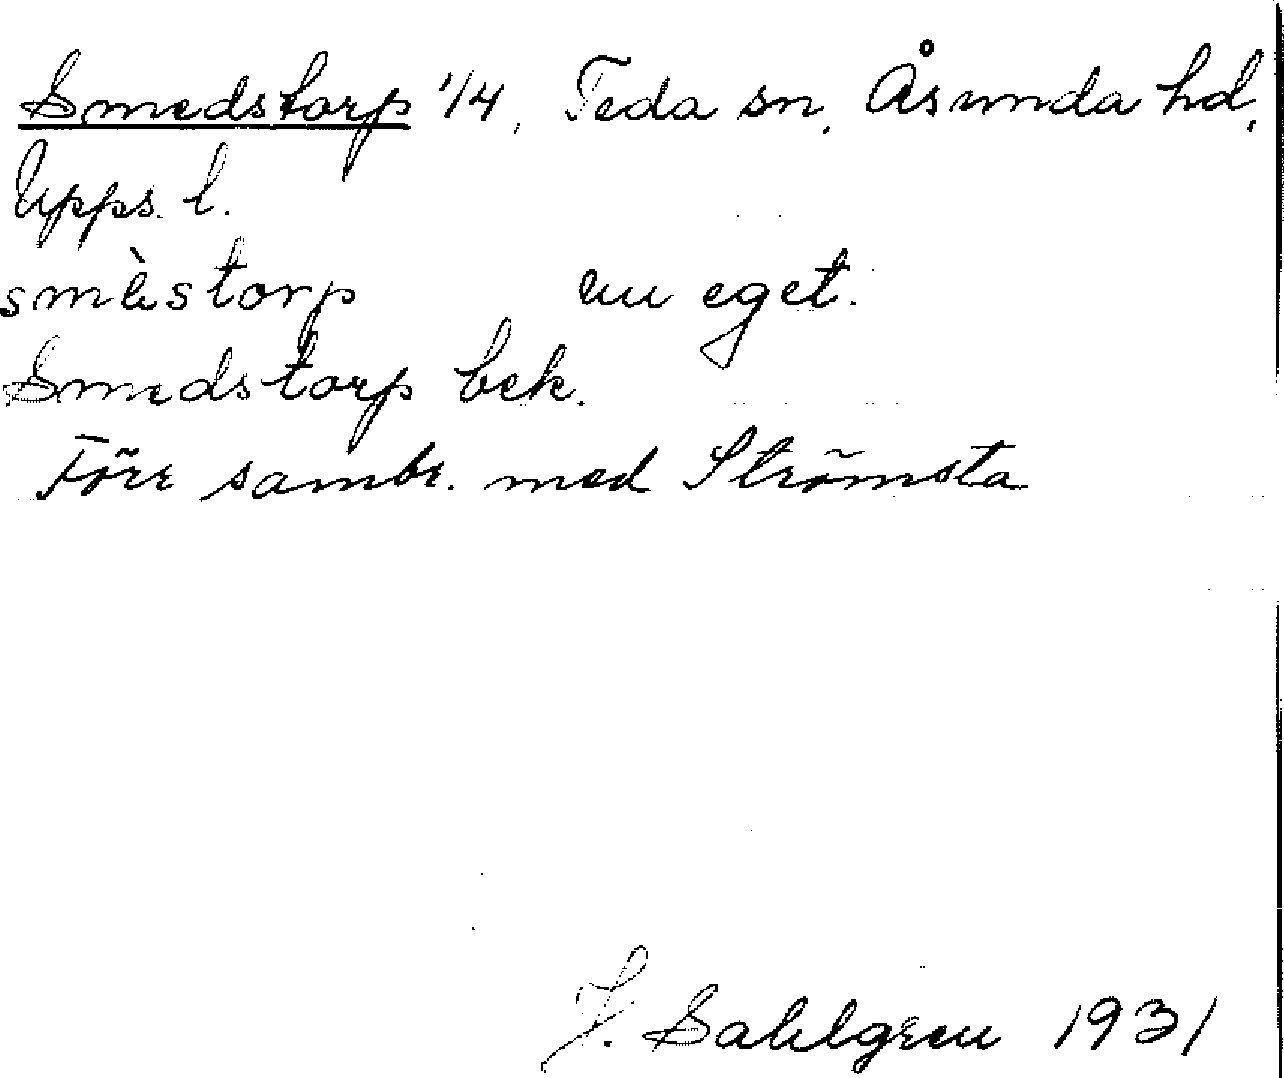 Smedstorp 1/4, Teda sn, Åsunda hd,
Upps. l.
smèstorp nu eget.
Smedstorp bek.
Förr sambr. med Strömsta
J. Sahlgren 1931